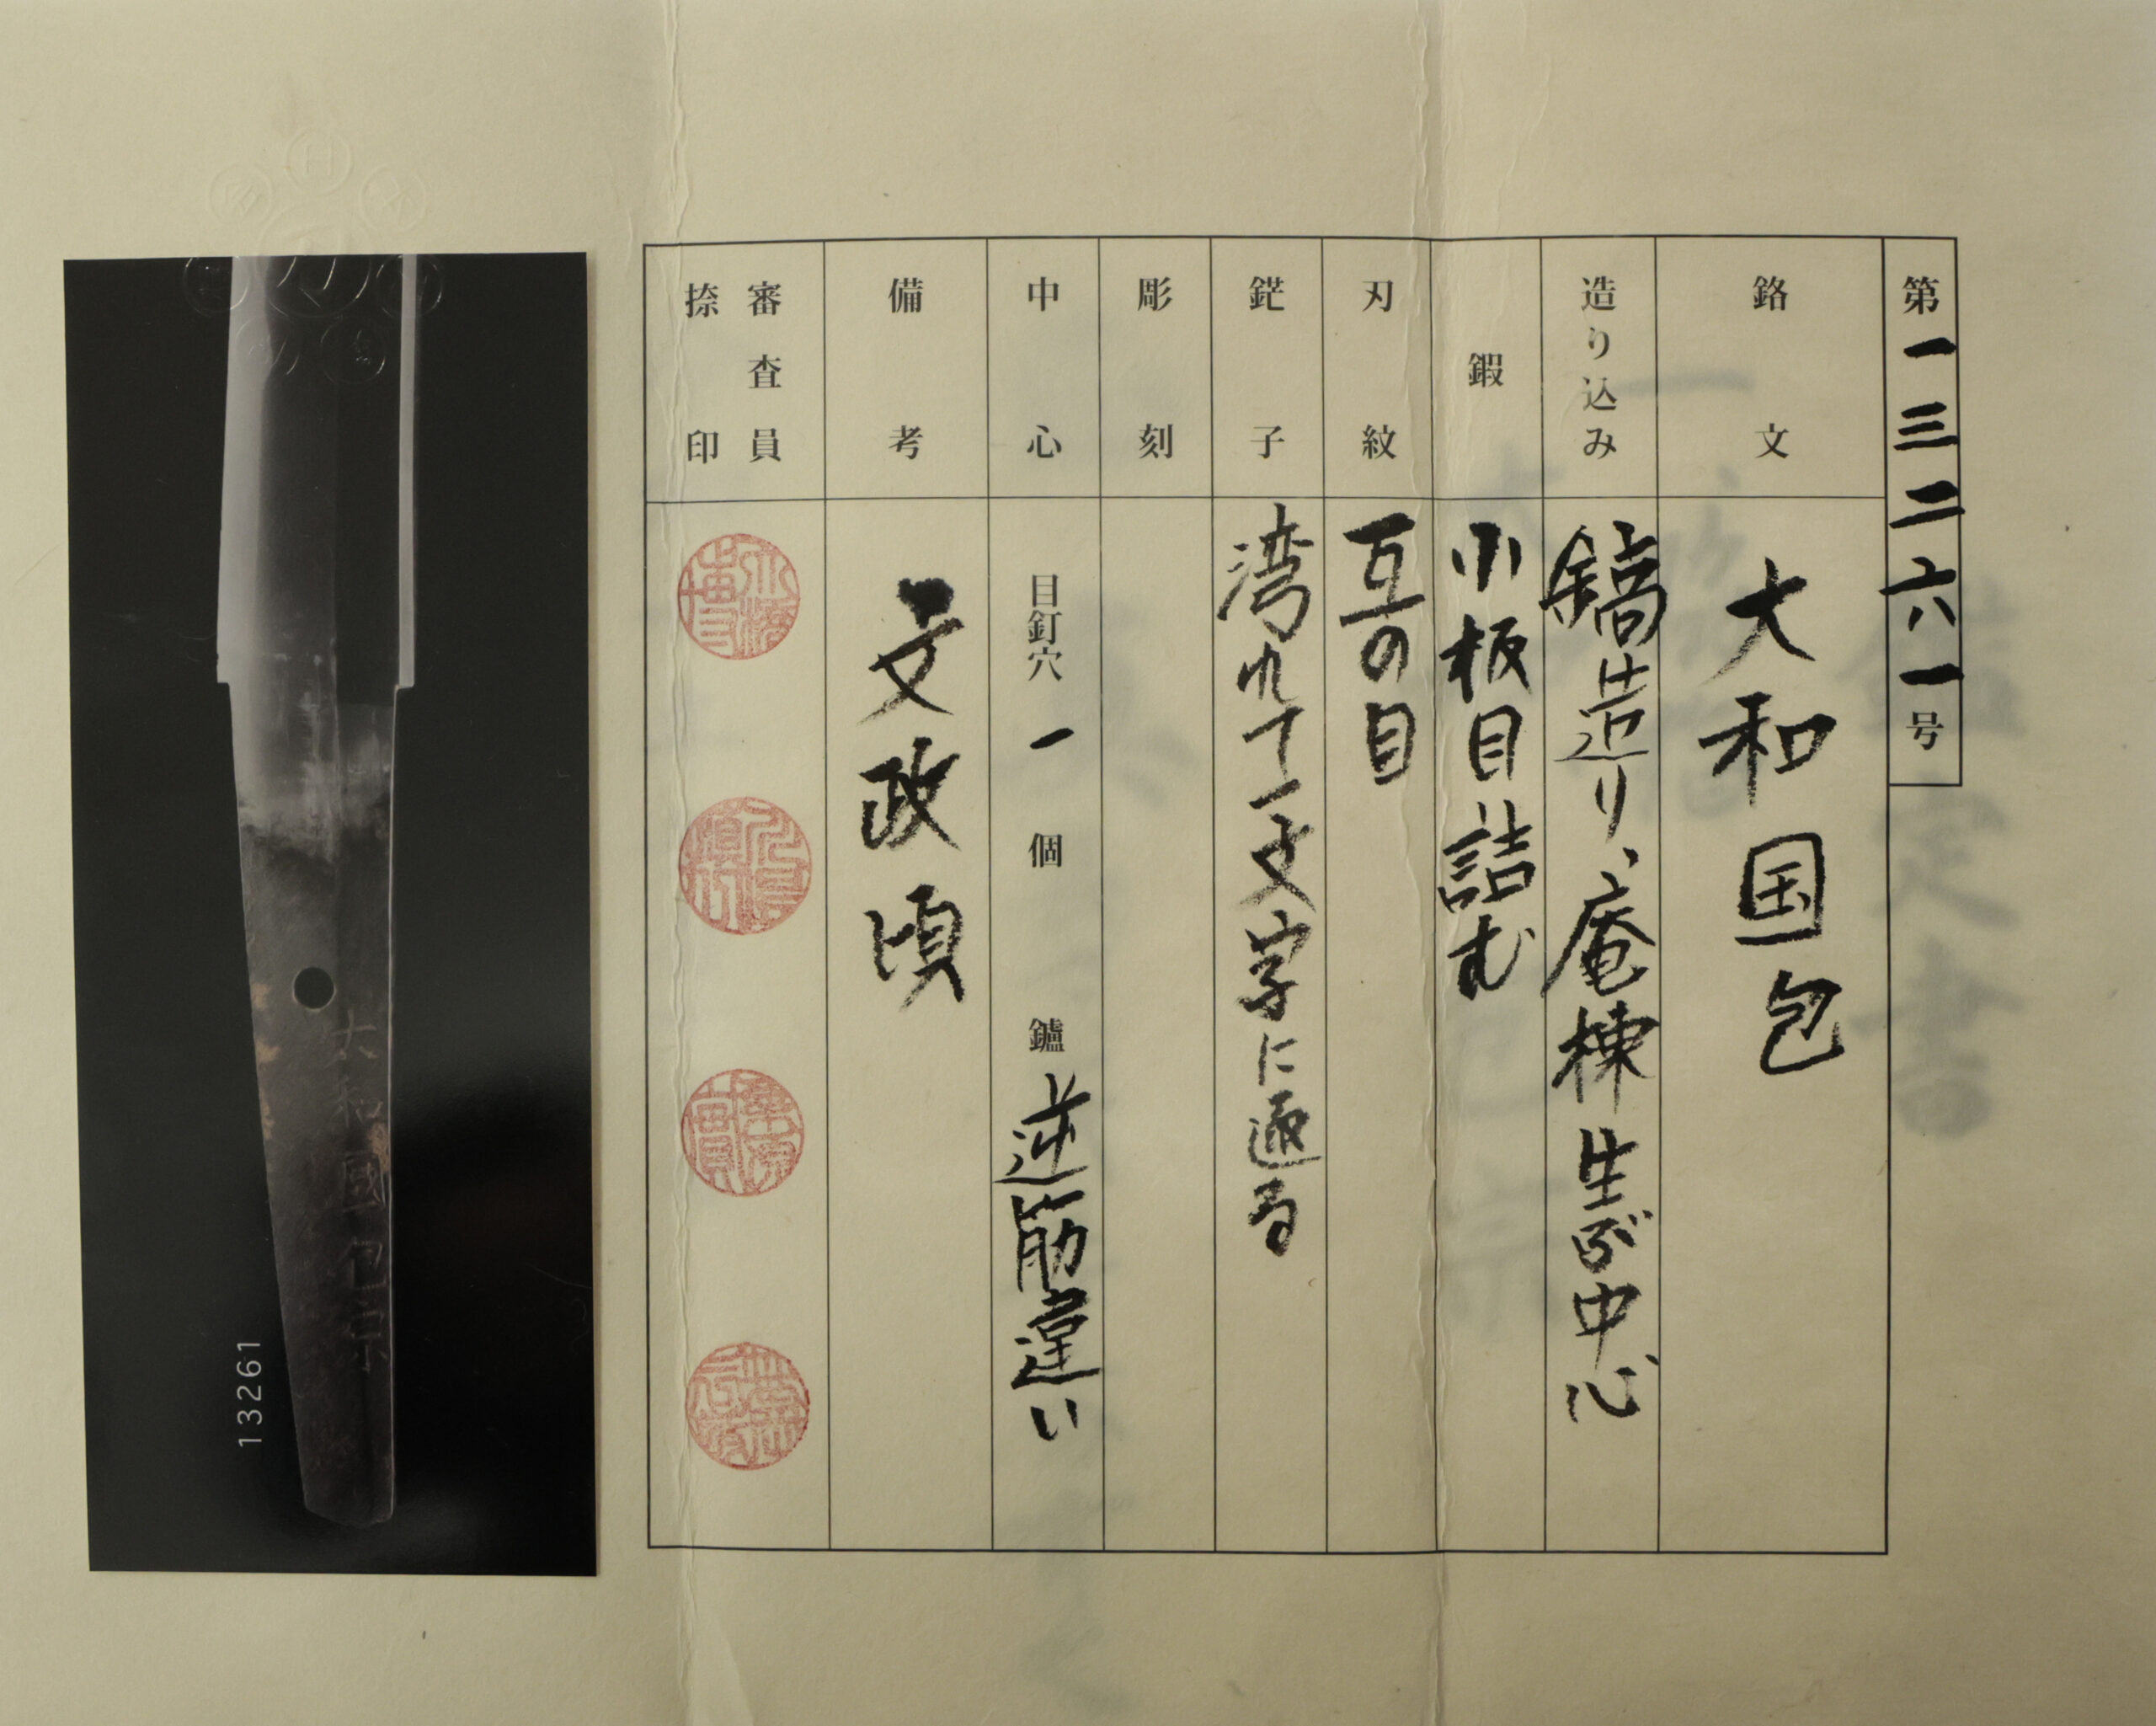 第一三二六一号
銘文
大和国包
造り込み
鎬造り、庵棟 生ぶ中心
鍜
小板目詰む
刃紋
互の目
鋩子
湾れて一文字に返る
彫刻
中心
目釘穴 一 個 鑢 逆筋違い
備考
文政頃
審査員
捺印
大和國包
13261